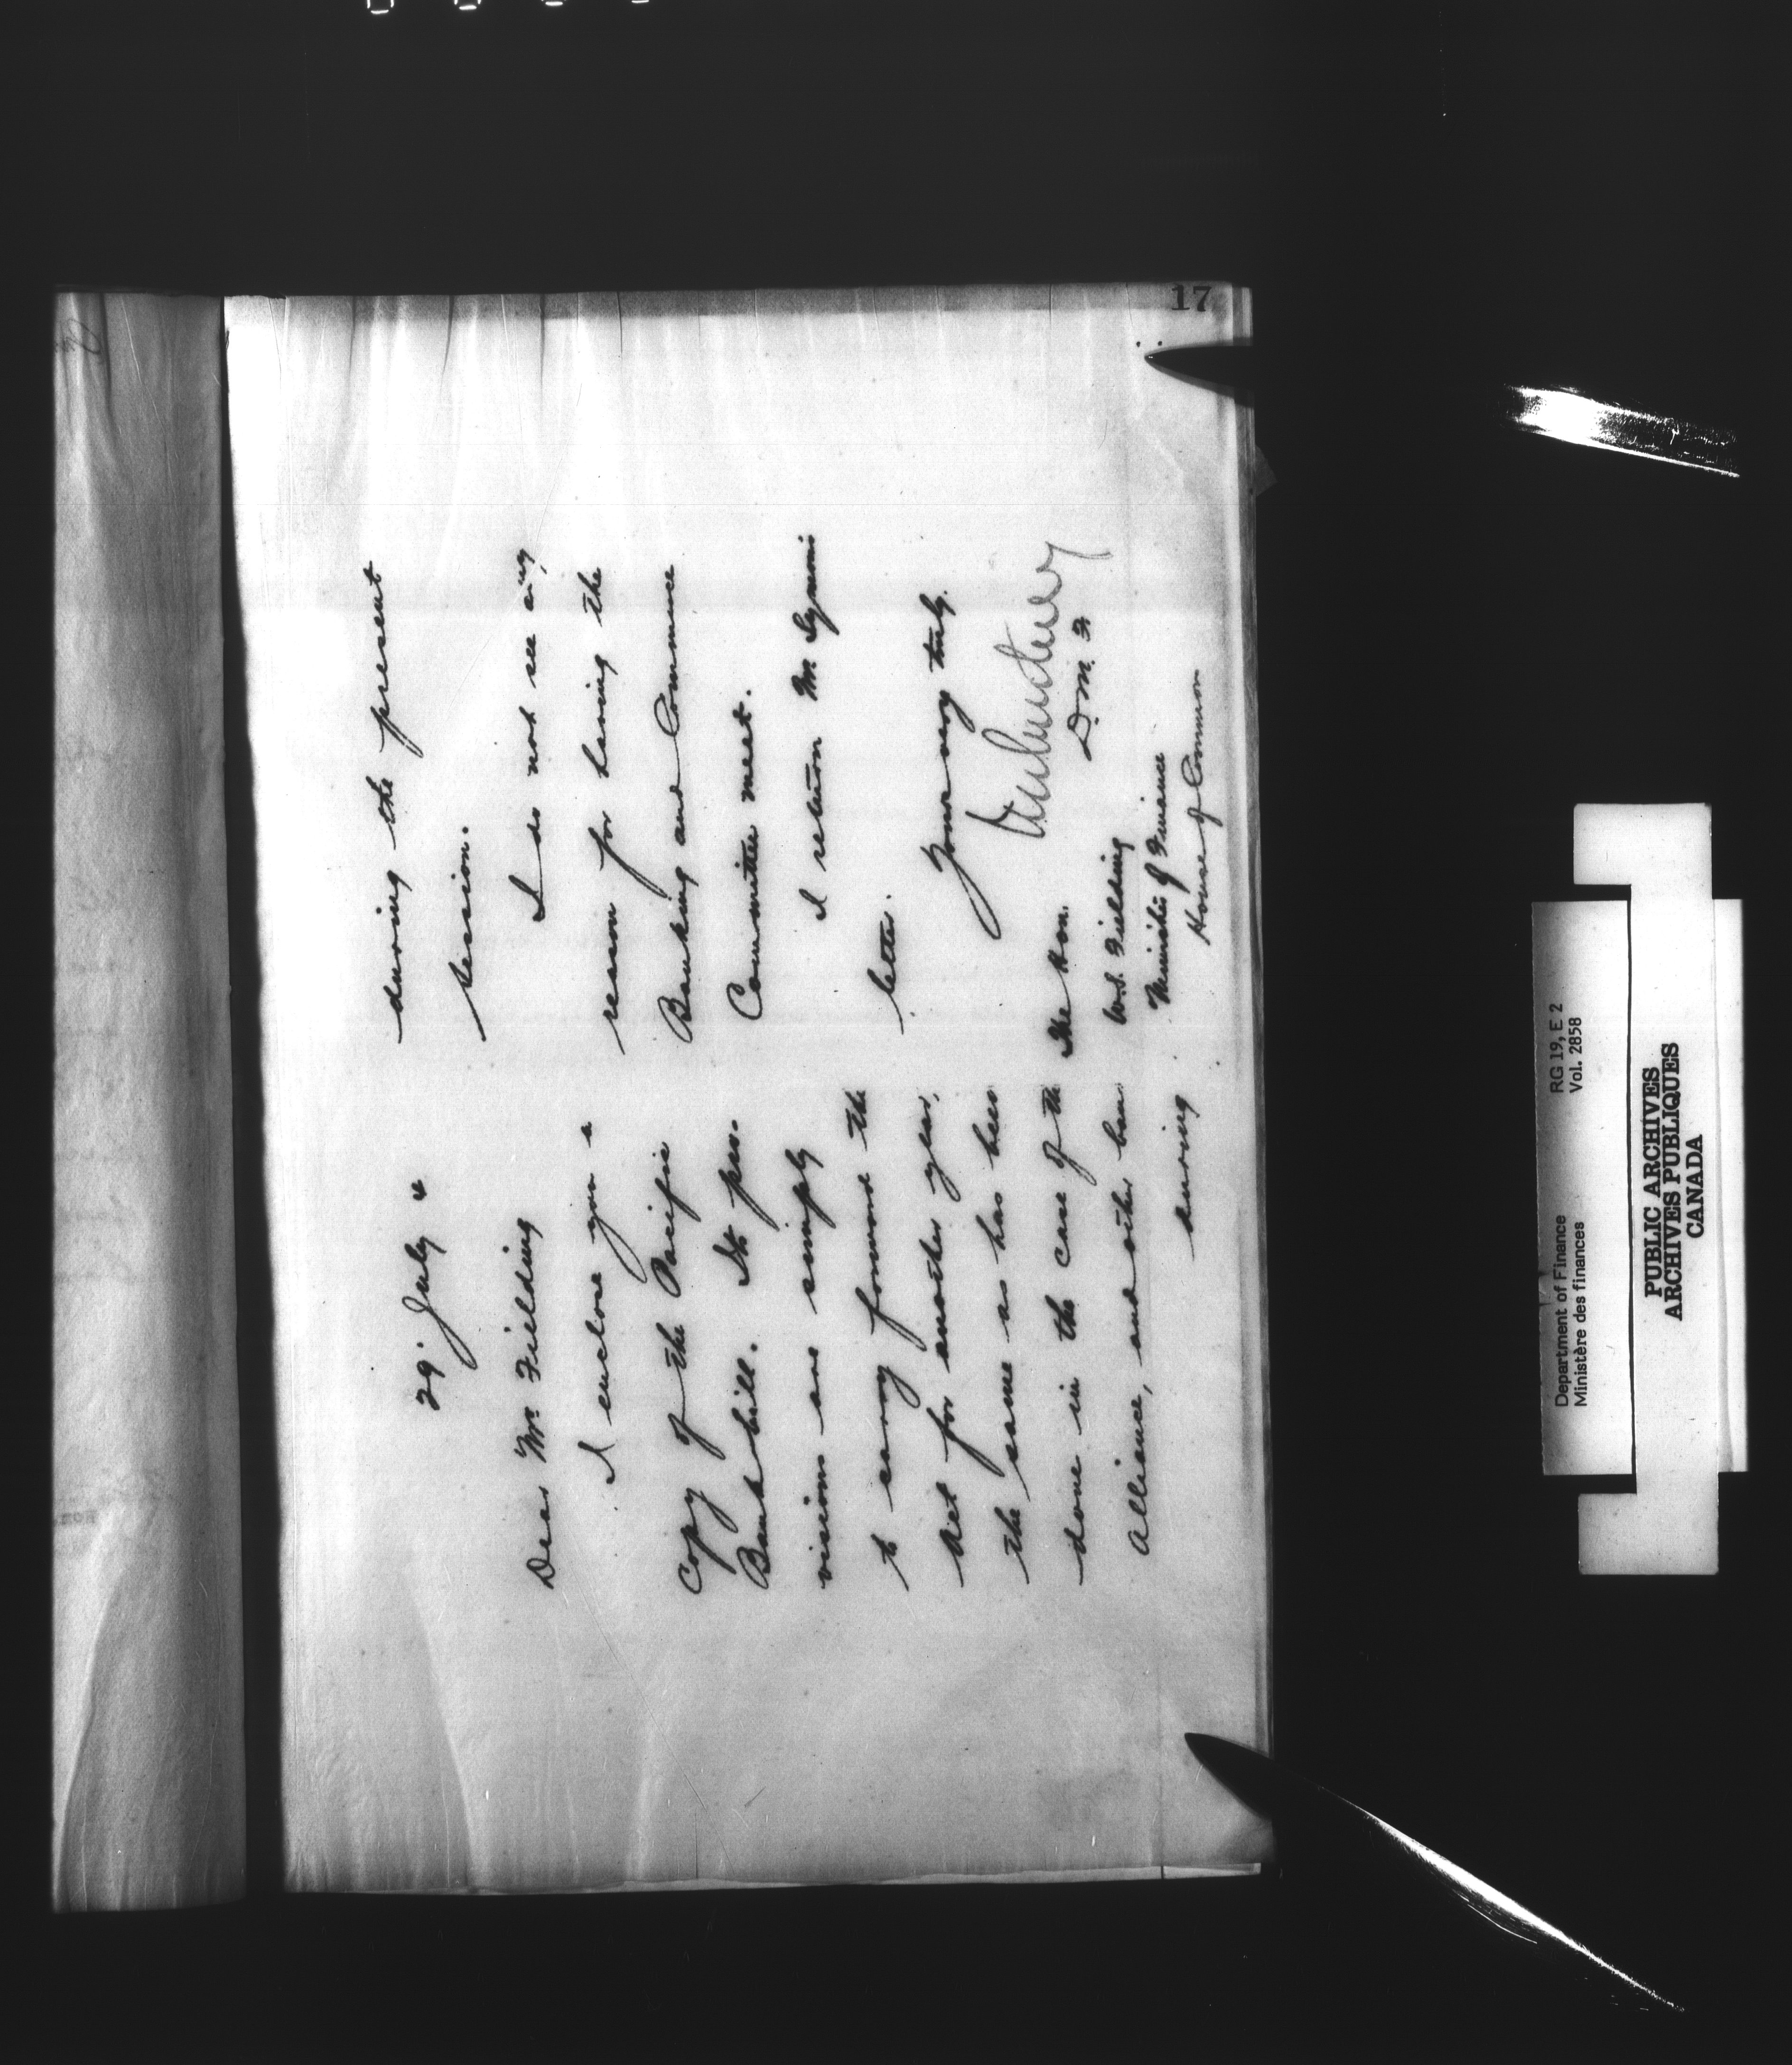 17
29 July 4
Dear Mr. Fielding
I enclose you a
copy of the Pacific
Bank bill. Its pro-
visions are simply
to carry forward the
Act for another year,
the same as has been
done in the case of the
Alliance, and other ban
during
during the present
session.
I do not see any
reason for having the
Banking and Commerce
Committee meet.
I return Mr.
letter.
Yours very truly.
D.M.F.
The Hon.
W.S. Fielding
Minister of Finance
House of Commons
Department of Finance RG 19, E 2
Ministère des finances Vol. 2858
PUBLIC ARCHIVES
ARCHIVES PUBLIQUES
CANADA